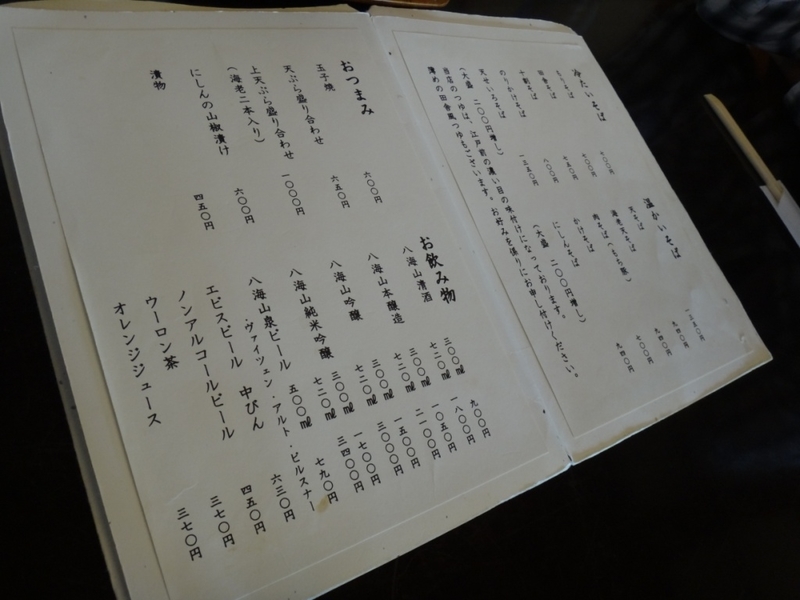 冷たいそば
もりそば 七〇〇円
田舎そば 七五〇円
十割そば 八〇〇円
のりかけそば 七五〇円
天せいろそば 一三五〇円
(大盛 二〇〇円増し)
当店のつゆは、江戸前の濃い目の味付けになっております。
薄めの田舎風つゆもございます。お好みを係りにお申し付けください。
温かいそば
天そば
海老天そば 一三五〇円
肉そば(もち豚) 九四〇円
かけそば 七〇〇円
にしんそば 九四〇円
(大盛 二〇〇円増し)
おつまみ
玉子焼 六〇〇円
天ぷら盛り合わせ 六五〇円
上天ぷら盛り合わせ 一〇〇〇円
(海老二本入り)
にしんの山椒漬け 六〇〇円
漬物 四五〇円
お飲み物
八海山清酒 三〇〇㎖ 九〇〇円
七二〇㎖ 一八〇〇円
八海山本醸造 三〇〇㎖ 一〇五〇円
七二〇㎖ 二一〇〇円
八海山吟醸 三〇〇㎖ 一五〇〇円
七二〇㎖ 三〇〇〇円
八海山純米吟醸 三〇〇㎖ 一七〇〇円
七二〇㎖ 三四〇〇円
八海山泉ビール 五〇〇㎖ 七九〇円
・ヴァイツェン・アルト・ピルスナー
エビスビール 中びん 六三〇円
ノンアルコールビール 四五〇円
ウーロン茶 三七〇円
オレンジジュース 三七〇円